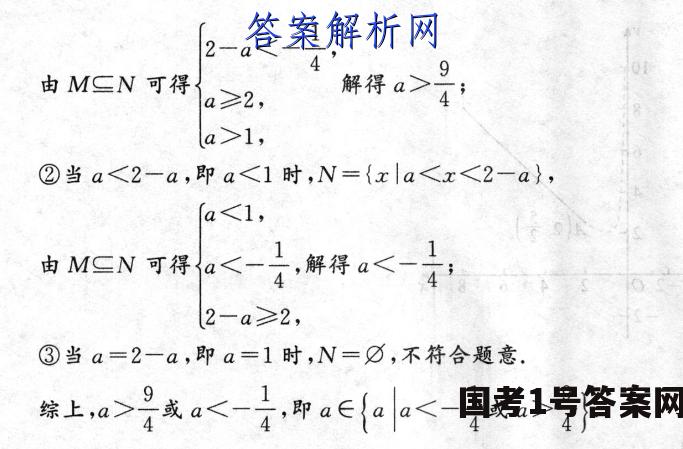 答案解析网
由 M⊆N 可得 { 2-a<-1/4, a≥2, a>1, 解得 a>9/4;
②当 a<2-a,即 a<1 时,N={x|a<x<2-a},
由 M⊆N 可得 { a<1, a<-1/4, 2-a≥2, 解得 a<-1/4;
③当 a=2-a,即 a=1 时,N=∅,不符合题意.
综上,a>9/4 或 a<-1/4,即 a∈{a|a<-1/4 或 a>9/4}
国考1号答案网